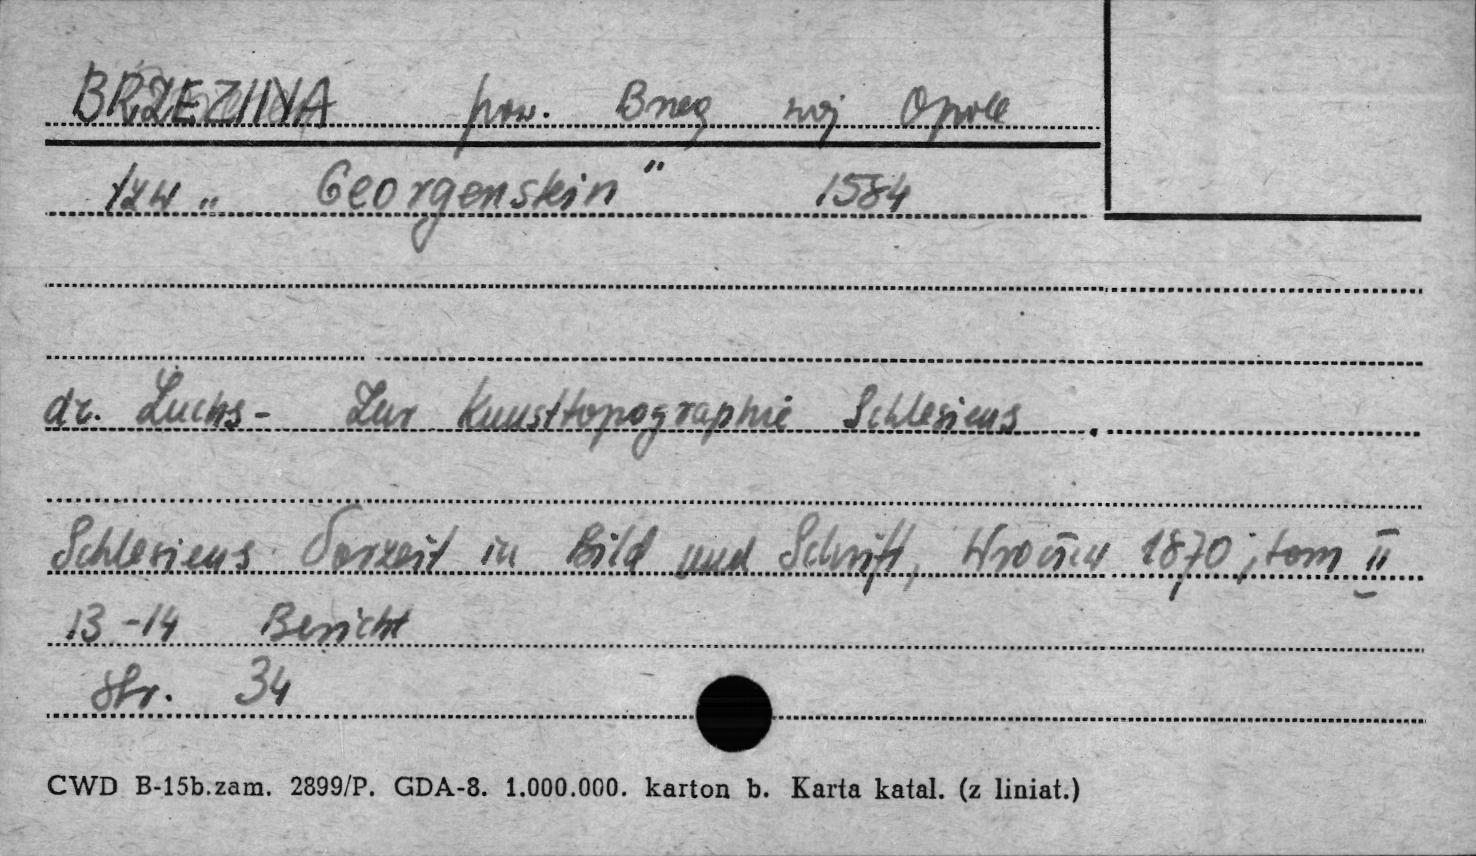 BRZEZINA pow. Brzeg woj Opole
tzw „ Georgenstein " 1584
dr. Luchs - Zur Kunsttopographie Schlesiens .
Schlesiens Vorzeit in Bild und Schrift, Wrocław 1870, tom II
13-14 Bericht
str. 34
CWD B-15b.zam. 2899/P. GDA-8. 1.000.000. karton b. Karta katal. (z liniat.)